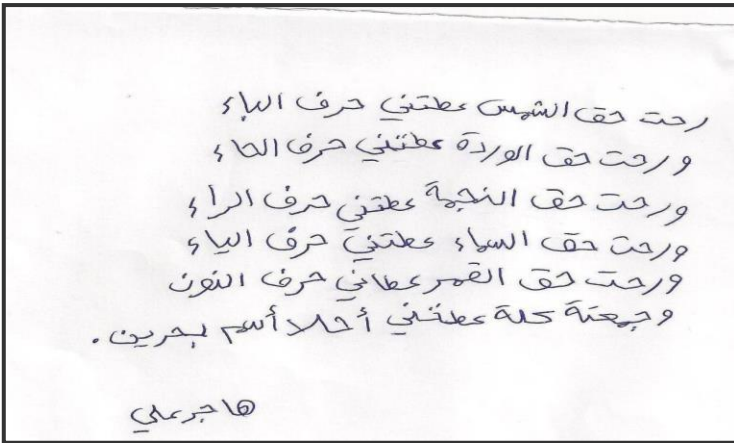 رحت حق الشمس عطتني حرف الباء
ورحت حق الوردة عطتني حرف الحاء
ورحت حق النجمة عطتني حرف الراء
ورحت حق السماء عطتني حرف الياء
ورحت حق القمر عطاني حرف النون
وجمعتة كلة عطتني أحلا أسم بحرين.
هاجر علي